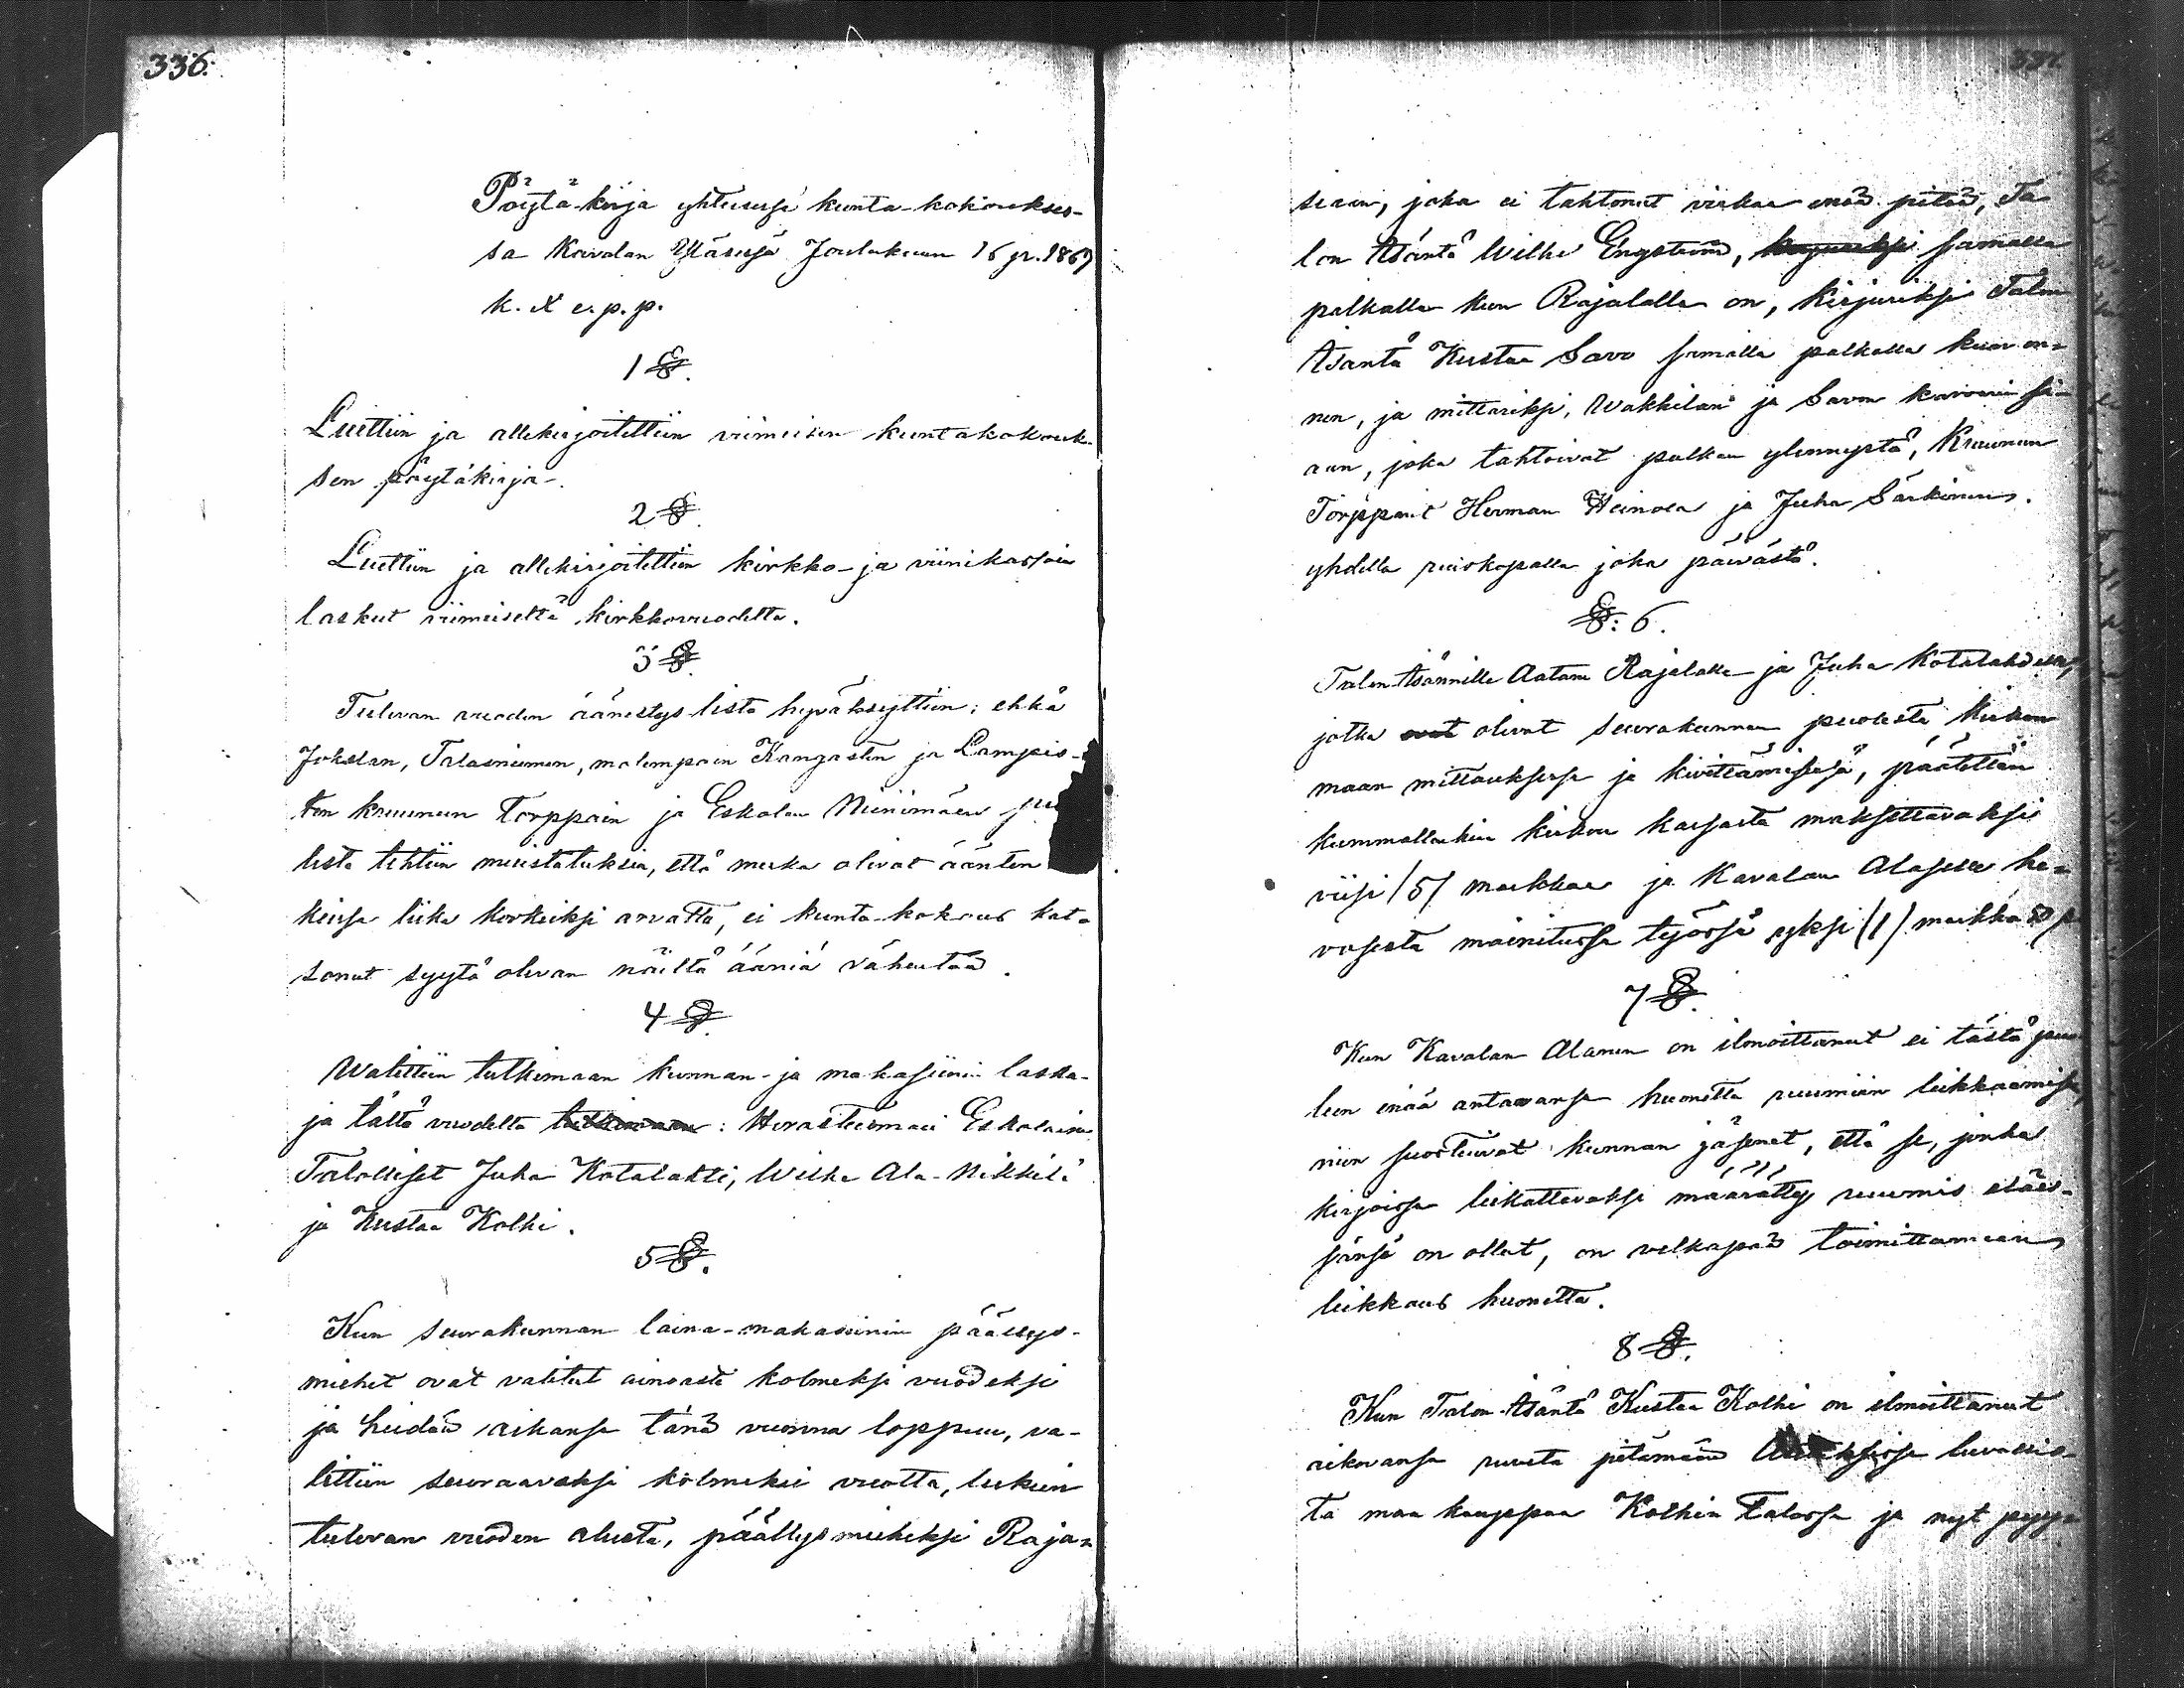 336.
Pöytä-kirja yhteisessä kunta-kokoukses-
sa Kavalan Yläsessä Joulukuun 16 p. 1867
k. X e. p. p.
1 §.
Luettiin ja allekirjoitettiin viimeisen kuntakokouk-
sen pöytäkirja.
2 §.
Luettiin ja allekirjoitettiin kirkko- ja viinikassain
laskut viimeiseltä kirkkovuodelta.
3 §.
Tulevan vuoden äänestys lista hyväksyttiin; ehkä
Jokelan, Talasniemen, molempain Kangasten ja Lampis-
ten kruunun Torppain ja Eskolan Niinimäen puo
lesta tehtiin muistutuksia, että muka olivat ääntén
keissa liika korkeiksi arvatta, ei kunta-kokous kat-
sonut syytä olevan näiltä ääniä vähentää.
4 §.
Walittiin tutkimaan kunnan- ja makasiinin lasku-
ja tältä vuodelta tutkimaan: Herastuomari Eskolainen
Talolliset Juha Kotalahti, Wilhe Ala-Nikkilä
ja Kustaa Kolhi.
5 §.
Kun seurakunnan laina-makasiinin päällys-
miehet ovat valitut ainoasti kolmeksi vuodeksi
ja heidän aikansa tänä vuonna loppuu, va-
littiin seuraavaksi kolmeksi vuotta, lukein
tulevan vuoden alusta, päällysmieheksi Raja-
siaan, joka ei tahtonut virkaa enää pitää, Ta
lon Isäntä Wilhe Engström, samalla
palkalla kun Rajalalla on, kirjuriksi Talon
Isäntä Kustaa Savo samalla palkalla kuin en-
nen, ja mittariksi, Wakkilan ja Savon
aan, joka tahtoivat palkan ylennystä, Kruunun
Torpparit Herman Heinoa ja Juha Särkinen.
yhdellä ruiskapalla joka päivästä.
§: 6.
Talon-Isännille Aatami Rajalalle ja Juha Kotalahdelle,
jotka ovat olivat seurakunnan puolesta kirkon
maan mittauksessa ja kivittämisessä, päätettiin
kummallenkin kirkon kassasta maksettavaksi
viisi /5/ markkaa ja Kavalan Alaselle he-
vosesta mainitussa työssä yksi /1/ markka 50 p
7 §.
Kun Kavalan Alanen on ilmoittanut ei tästä puo
leen enää antavansa huonetta ruumiin leikkaamista,
niin suostuivat kunnan jäsenet, että se, jonka
kirjoissa leikattavaksi määrätty ruumis eläis-
sänsä on ollut, on velkapää toimittamaan
leikkaus huonetta.
8 §.
Kun Talon-Isäntä Kustaa Kolhi on ilmoittanut
aikovansa ruveta pitämään luvallis-
ta maa kauppaa Kolhin Talossa ja nyt pyyt